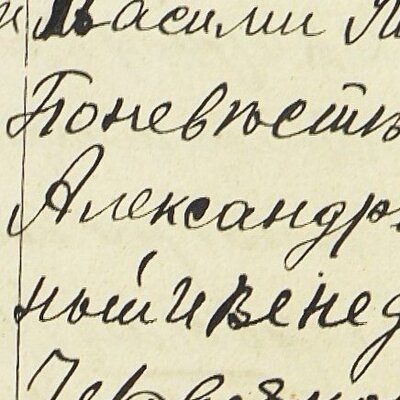 Василии
По невѣстѣ
Александр
ный и венед